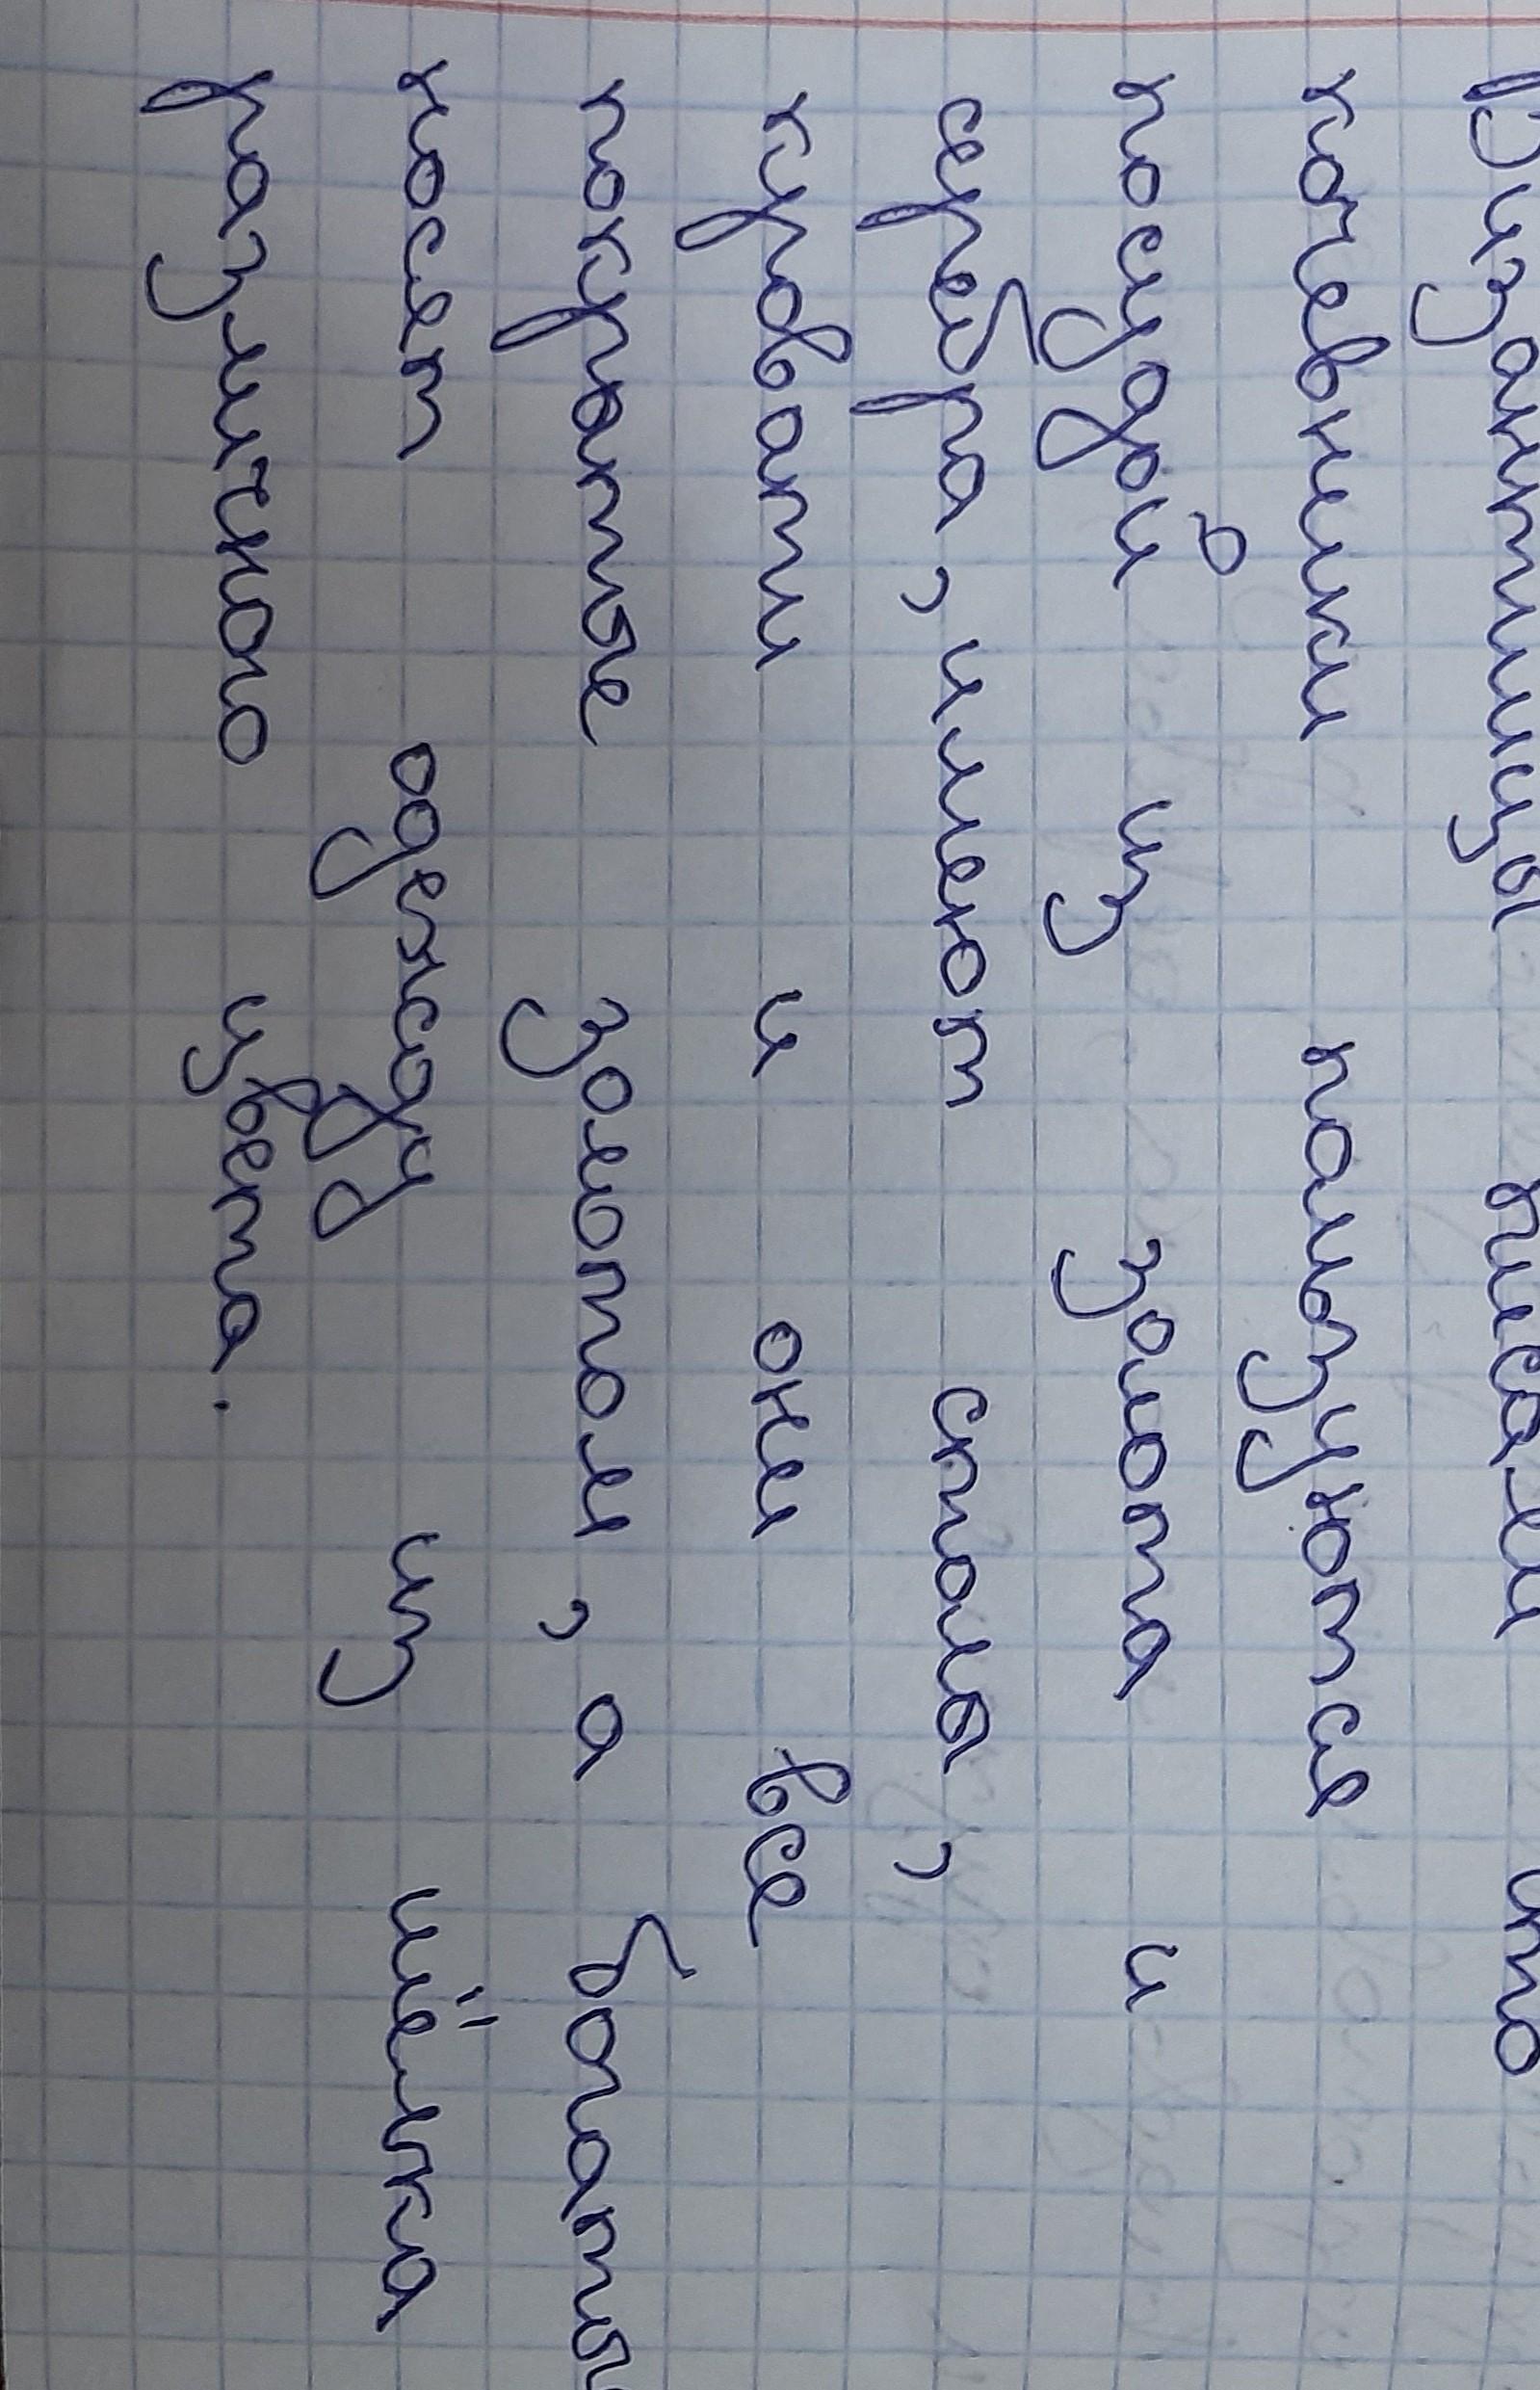 Византийцы писали что
кочевники пользуются
посудой из золота и
серебра, имеют столы,
кровати и они все
покрытые золотом, а богаты
носят одежду из шёлка
различного цвета.